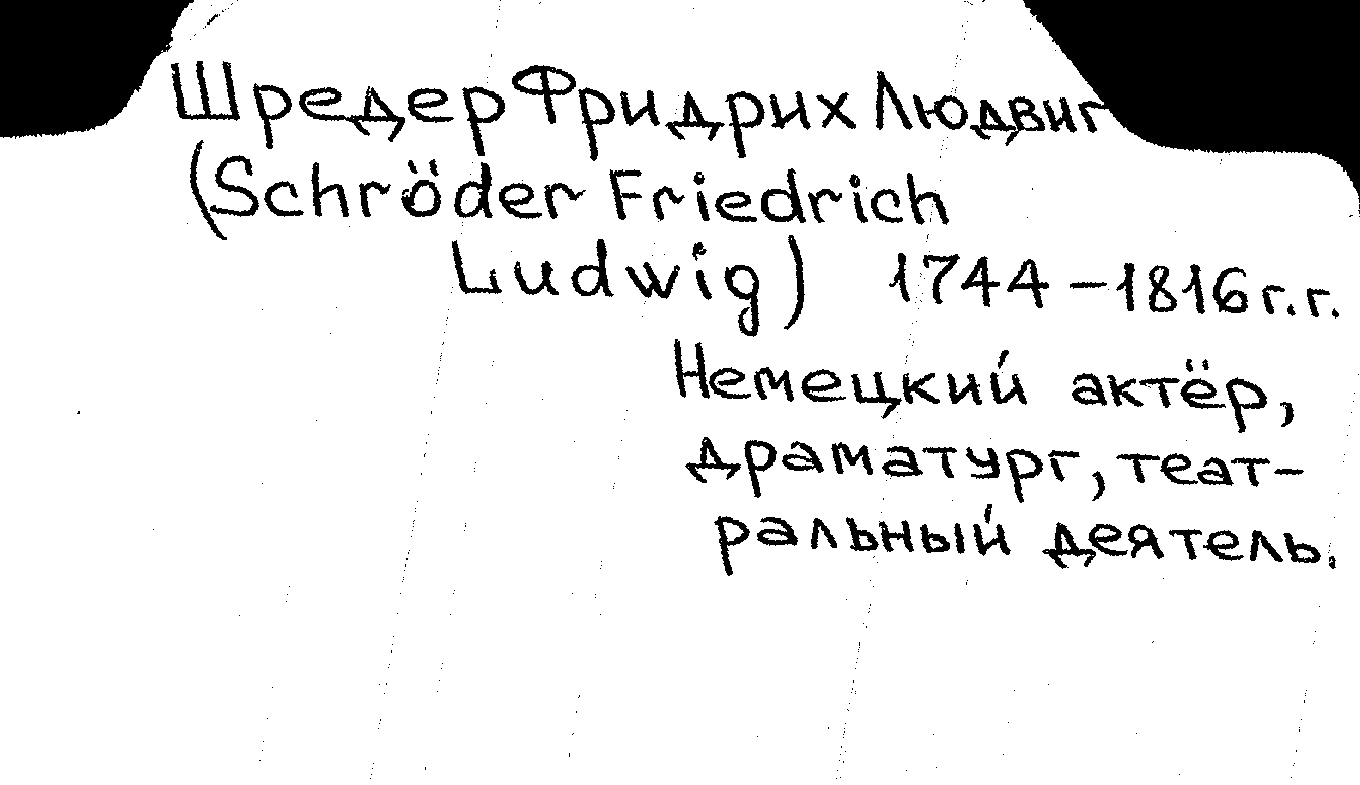 Шредер Фридрих Людвиг
(Schröder Friedrich
Ludwig) 1744-1816 г.г.
Немецкий актёр,
драматург, теат-
ральный деятель.